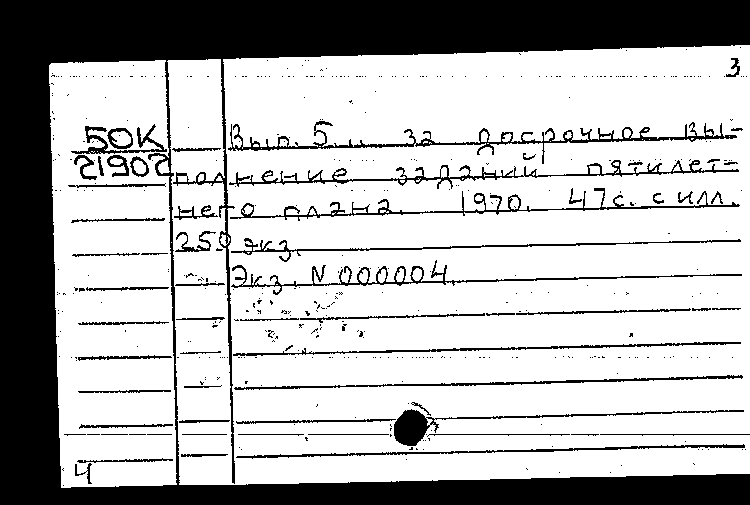 3
50К
21902
Вып. 5... За досрочное вы-
полнение заданий пятилет-
него плана. 1970. 47с. с илл.
250 экз.
Экз. N 000004.
Ч